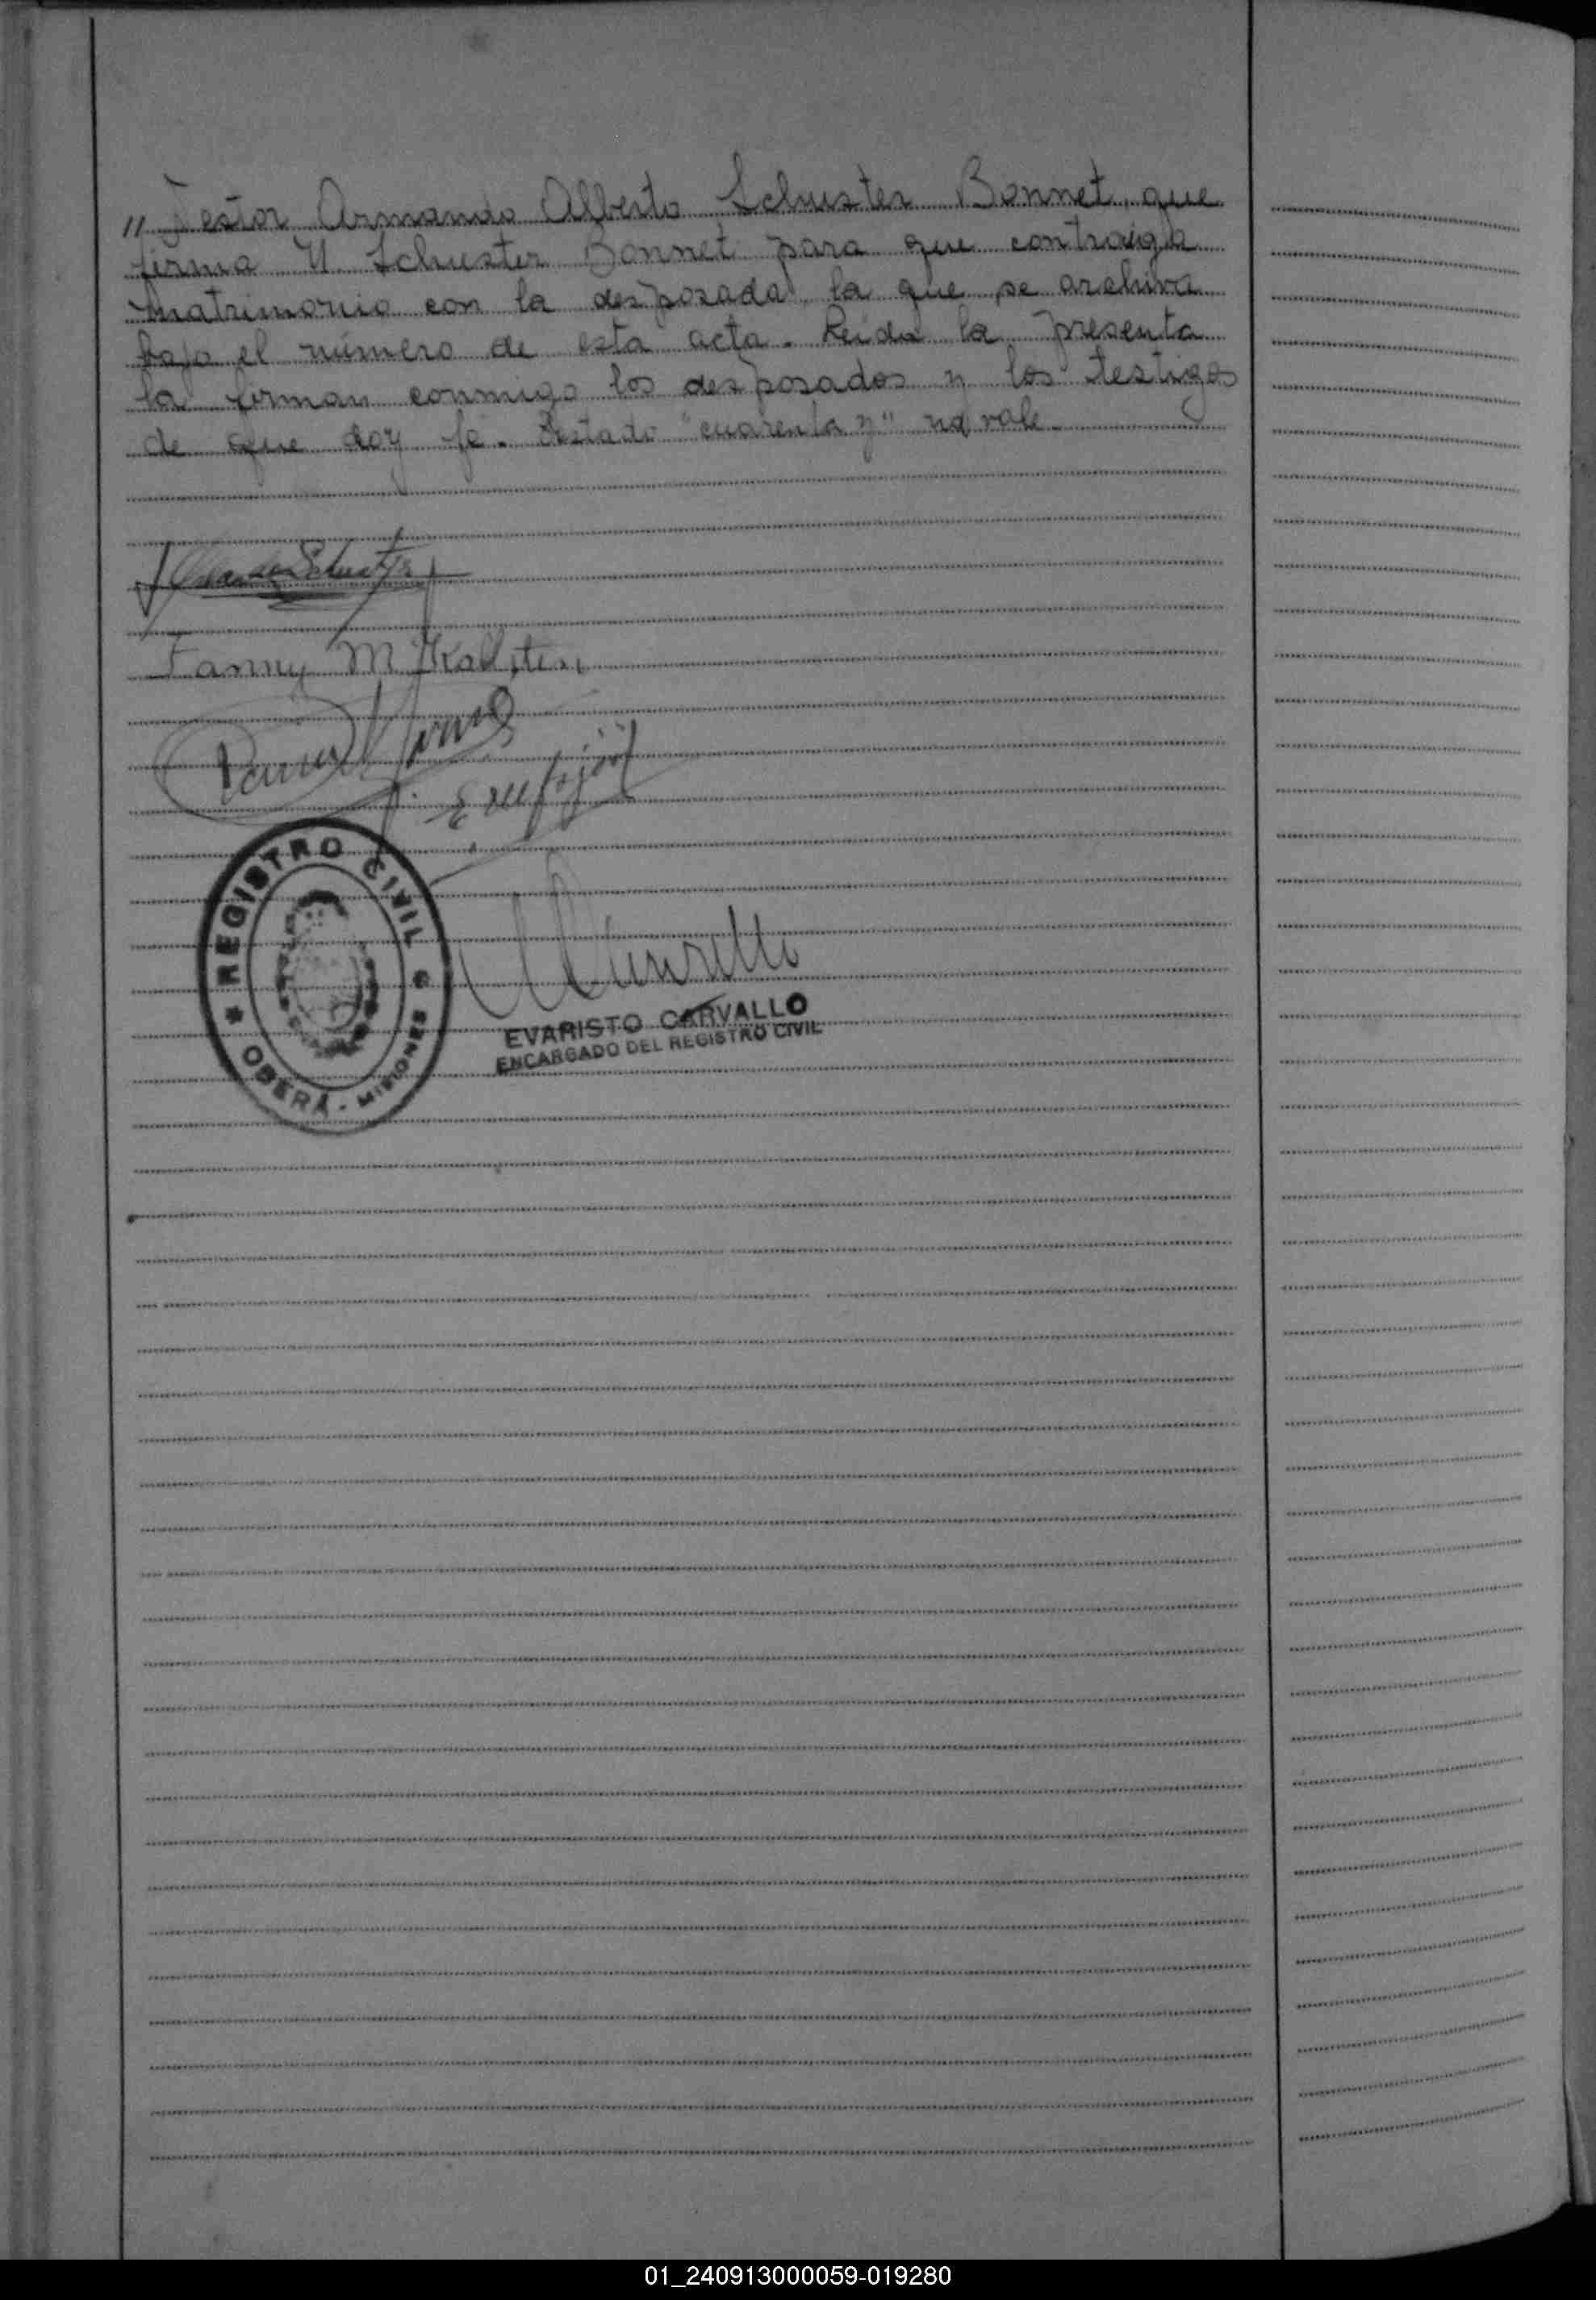 " Nestor Armando Alberto Schuster Bonnet, que
firma N Schuster Bonnet para que contraiga
matrimonio con la desposada, la que se archiva
bajo el número de esta acta. Leida la presenta
la firman conmigo los desposados y los testigos
de que doy fe. Testado "cuarenta y" no vale.
Schuster
Fanny M
REGISTRO CIVIL
OBERÁ - MISIONES
EVARISTO CARVALLO
ENCARGADO DEL REGISTRO CIVIL
01_240913000059-019280